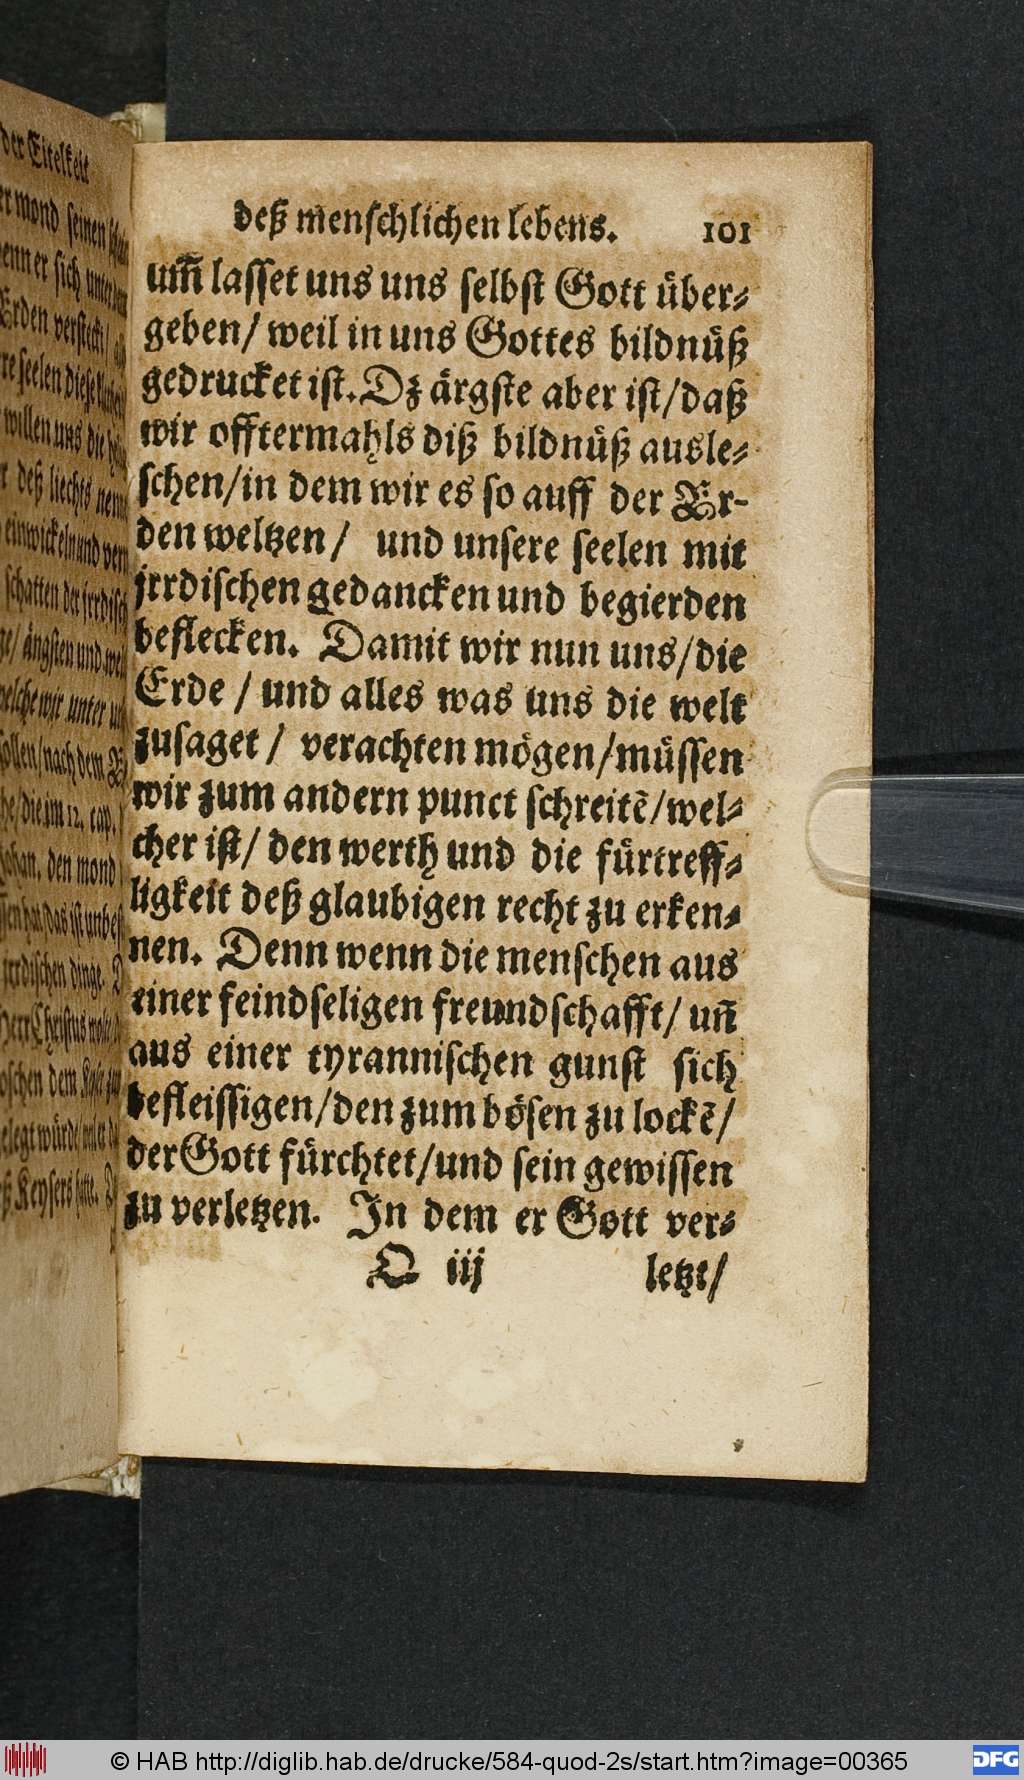 der Eitelkeit
er mond seinen
wenn er sich unter dem
Erden versteckt/
re seelen diese
willen uns die
r deß liechts
einwickeln und
schatten der
ge/ ängsten und
welche wir unter
sollen/ nach dem
he/ die im 12. cap.
Johan. den mond
das ist unbe
jrrdischen dinge.
Herr Christus
oschen dem
elegt würde/
ß Keysers hette.
deß menschlichen lebens. 101
um̃ lasset uns uns selbst Gott über-
geben/ weil in uns Gottes bildnüß
gedrucket ist. Dz ärgste aber ist/ daß
wir offtermahls diß bildnüß ausle-
schen/ in dem wir es so auff der Er-
den weltzen/ und unsere seelen mit
jrrdischen gedancken und begierden
beflecken. Damit wir nun uns/ die
Erde/ und alles was uns die welt
zusaget/ verachten mögen/ müssen
wir zum andern punct schreitẽ/ wel-
cher ist/ den werth und die fürtreff-
ligkeit deß glaubigen recht zu erken-
nen. Denn wenn die menschen aus
einer feindseligen freundschafft/ uñ
aus einer tyrannischen gunst sich
befleissigen/ den zum bösen zu lockẽ/
der Gott fürchtet/ und sein gewissen
zu verletzen. In dem er Gott ver-
O iij letzt/
© HAB http://diglib.hab.de/drucke/584-quod-2s/start.htm?image=00365
DFG